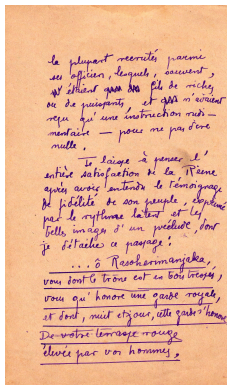 la plupart recrutés parmi
ses officiers, lesquels, souvent,
n'étaient que des fils de riches
ou de puissants, et n'avaient
reçu qu'une instruction rudi-
mentaire – pour ne pas dire
nulle.
Je laisse à penser l'
entière satisfaction de la Reine
après avoir entendu le témoignage
de fidélité de son peuple, exprimé
par le rythme latent et les
belles images d'un prélude, dont
je détache ce passage :
....ô Rasohermanjaka,
vous dont le trône est en bois tressés,
vous qu'honore une garde royale,
et dont, nuit et jour, cette garde s'honore
De votre terrasse rouge
élevée par vos hommes,